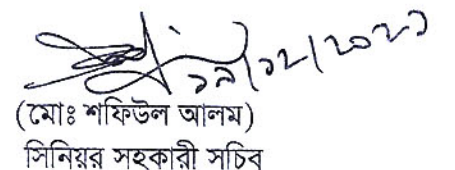 ১৯/১২/২০২১
(মোঃ শফিউল আলম)
সিনিয়র সহকারী সচিব